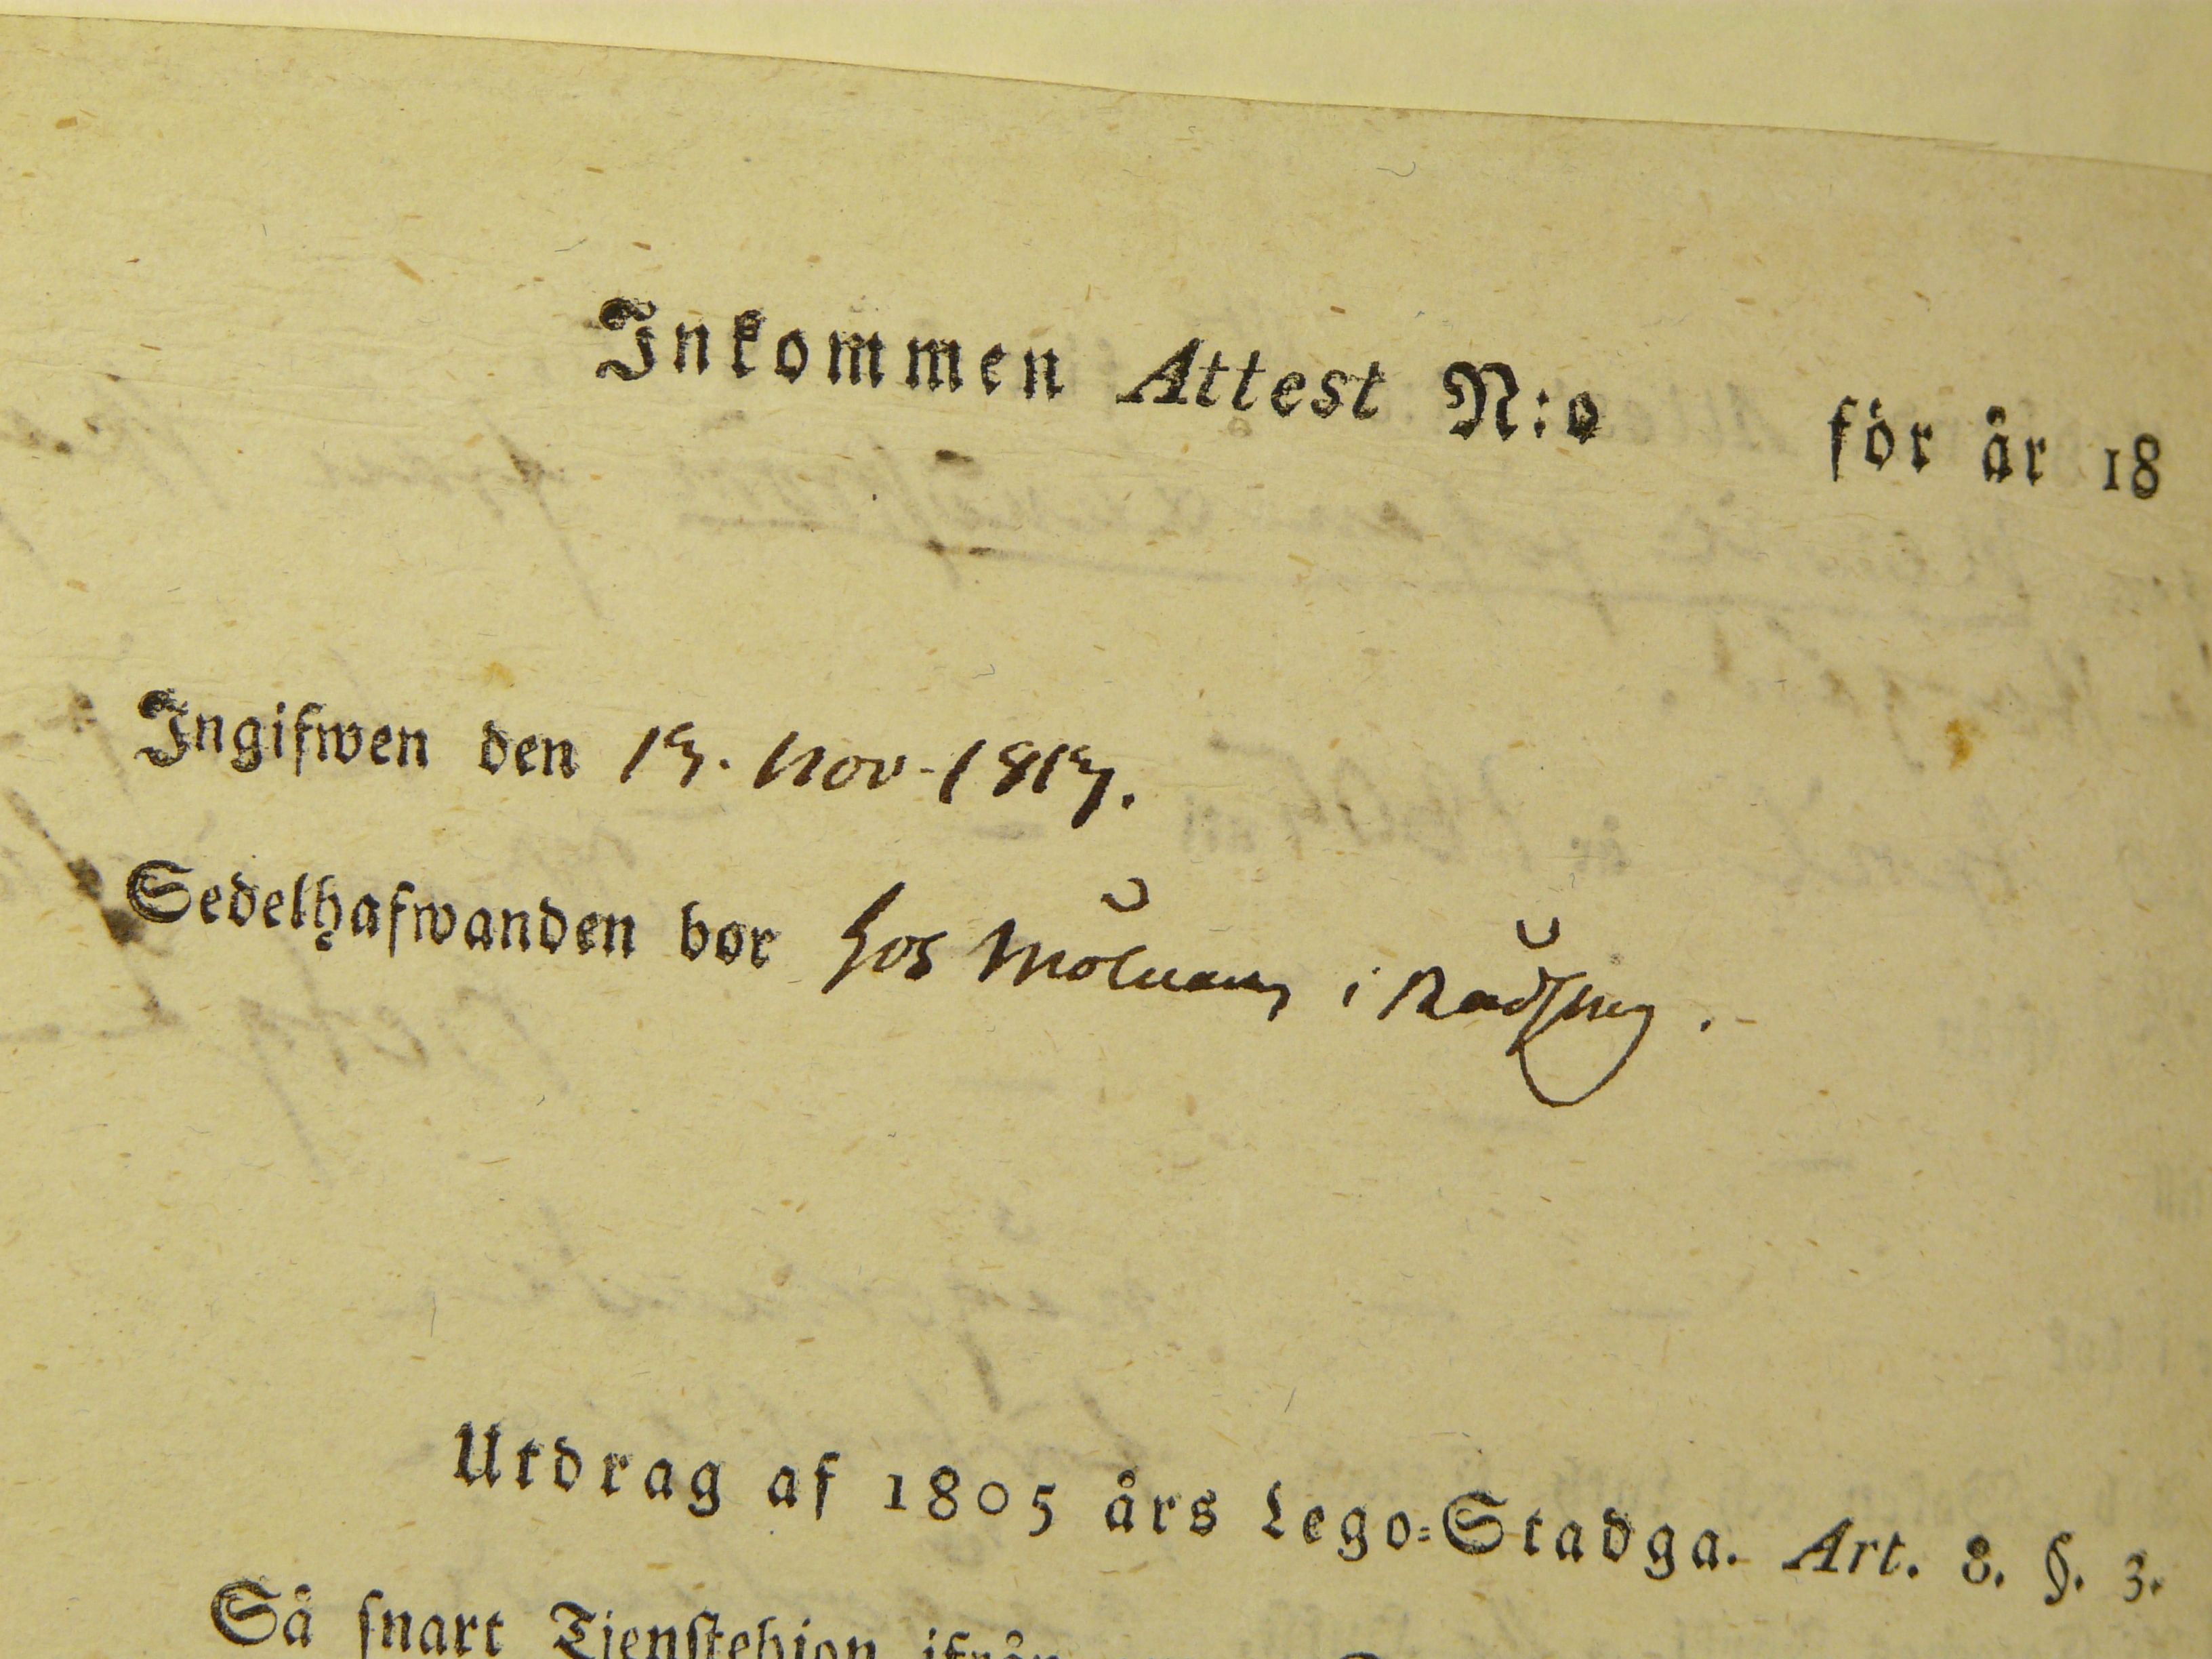 Inkommen Attest N:o för år 18
Ingifwen den 19. Nov. 1819.
Sedelhafwanden bor hos i
Utdrag af 1805 års Lego=Stadga. Art. 8. §. 3.
Så snart Tjenstehjon ifrån